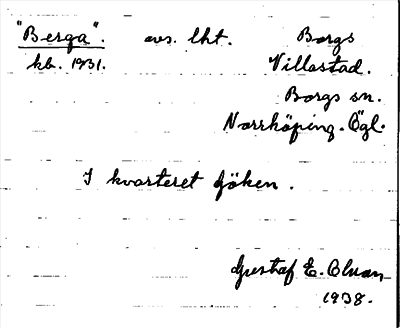 "Berga". avs. lht. Borgs
kb. 1931. Villastad.
Borgs sn.
Norrköping. Ögl.
I kvarteret Göken.
Gustaf E. Olsson
1938.